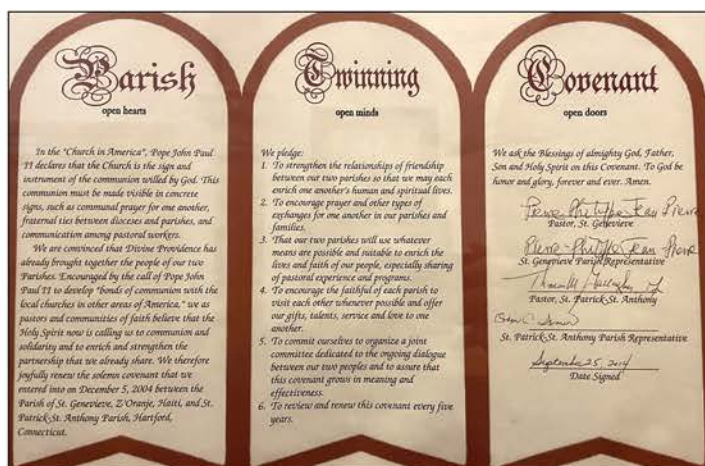 Parish
open hearts
In the "Church in America", Pope John Paul
II declares that the Church is the sign and
instrument of the communion willed by God. This
communion must be made visible in concrete
signs, such as communal prayer for one another,
fraternal ties between dioceses and parishes, and
communication among pastoral workers.
We are convinced that Divine Providence has
already brought together the people of our two
Parishes. Encouraged by the call of Pope John
Paul II to develop "bonds of communion with the
local churches in other areas of America," we as
pastors and communities of faith believe that the
Holy Spirit now is calling us to communion and
solidarity and to enrich and strengthen the
partnership that we already share. We therefore
joyfully renew the solemn covenant that we
entered into on December 5, 2004 between the
Parish of St. Genevieve, Z'Oranje, Haiti, and St.
Patrick-St. Anthony Parish, Hartford,
Connecticut.
Twinning
open minds
We pledge:
1. To strengthen the relationships of friendship
between our two parishes so that we may each
enrich one another's human and spiritual lives.
2. To encourage prayer and other types of
exchanges for one another in our parishes and
families.
3. That our two parishes will use whatever
means are possible and suitable to enrich the
lives and faith of our people, especially sharing
of pastoral experience and programs.
4. To encourage the faithful of each parish to
visit each other whenever possible and offer
our gifts, talents, service and love to one
another.
5. To commit ourselves to organize a joint
committee dedicated to the ongoing dialogue
between our two peoples and to assure that
this covenant grows in meaning and
effectiveness.
6. To review and renew this covenant every five
years.
Covenant
open doors
We ask the Blessings of almighty God, Father,
Son and Holy Spirit on this Covenant. To God be
honor and glory, forever and ever. Amen.
Pierre-Philippe Jean Pierre
Pastor, St. Genevieve
Pierre-Philippe Jean Pierre
St. Genevieve Parish Representative
Thomas M. Gallagher
Pastor, St. Patrick-St. Anthony
St. Patrick-St. Anthony Parish Representative
September 25, 2014
Date Signed